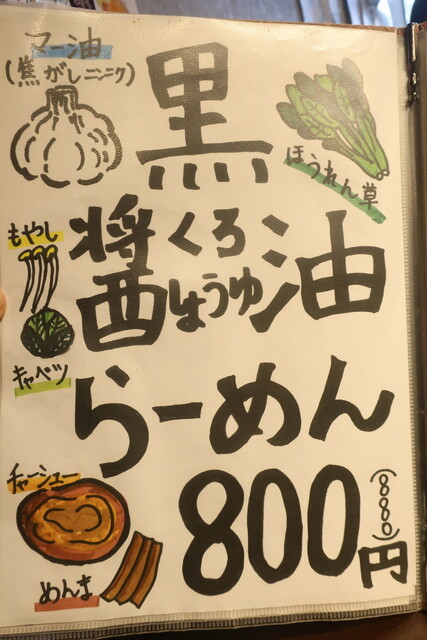 マー油
(焦がしニンニク)
黒
ほうれん草
醤油
くろ
しょうゆ
もやし
キャベツ
らーめん
チャーシュー
めんま
800円
(880)